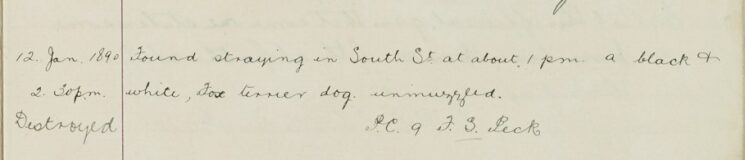 12. Jan. 1890 Found straying in South St. at about 1 pm. a black &
2.30p.m. white, Fox terrier dog. unmuzzled.
Destroyed P.C. 9 F. S. Peck